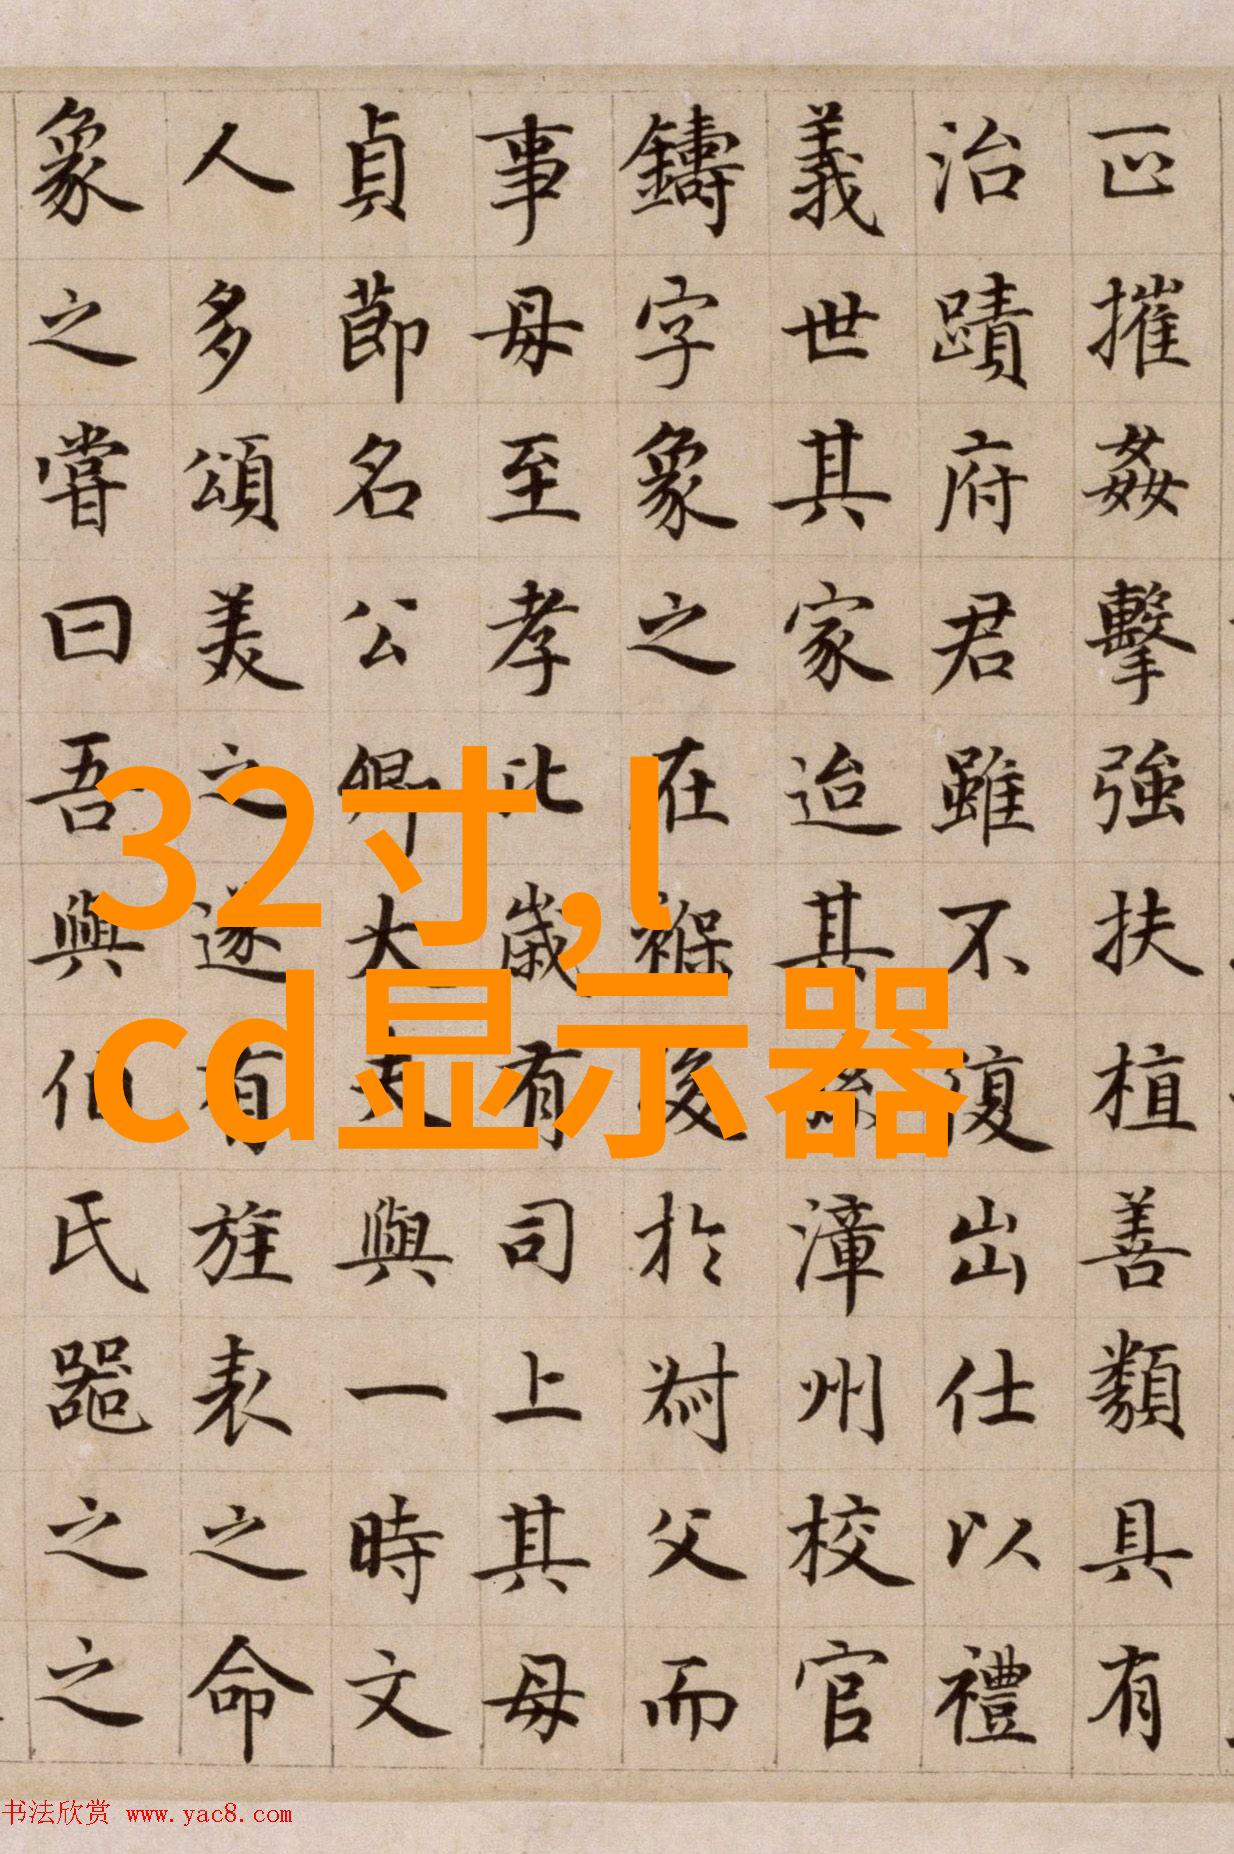 正摧姦擊強扶植善類具有
治蹟府君雖不復出仕以禮
義世其家迨其孫漳州校官
鑄字象之在褓後於叔父而
事母至孝比歲有司上其母
貞節名公卿大夫與一時文
人多頌美之遂有旌表之命
象之嘗曰吾與伯氏器之之
32寸,l
cd显示器
书法欣赏 www.yac8.com